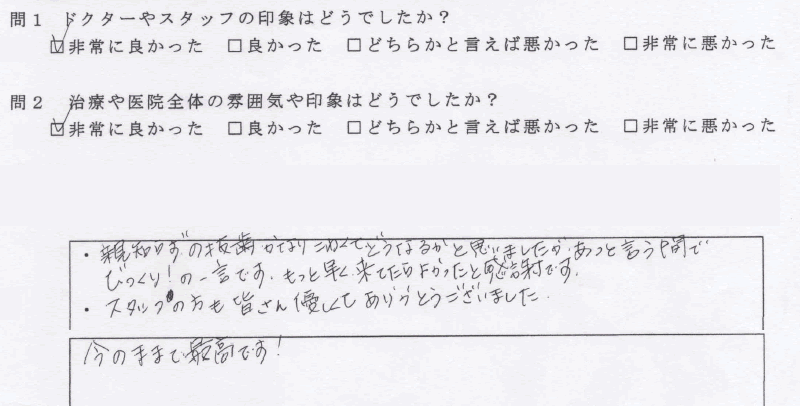 問1 ドクターやスタッフの印象はどうでしたか?
☑非常に良かった □良かった □どちらかと言えば悪かった □非常に悪かった
問2 治療や医院全体の雰囲気や印象はどうでしたか?
☑非常に良かった □良かった □どちらかと言えば悪かった □非常に悪かった
・親知らずの抜歯がかなりこわくてどうなるかと思いましたが、あっと言う間で
びっくり!の一言です。もっと早く来てたらよかったと感謝です。
・スタッフの方も皆さん優しくてありがとうございました.
今のままで最高です!